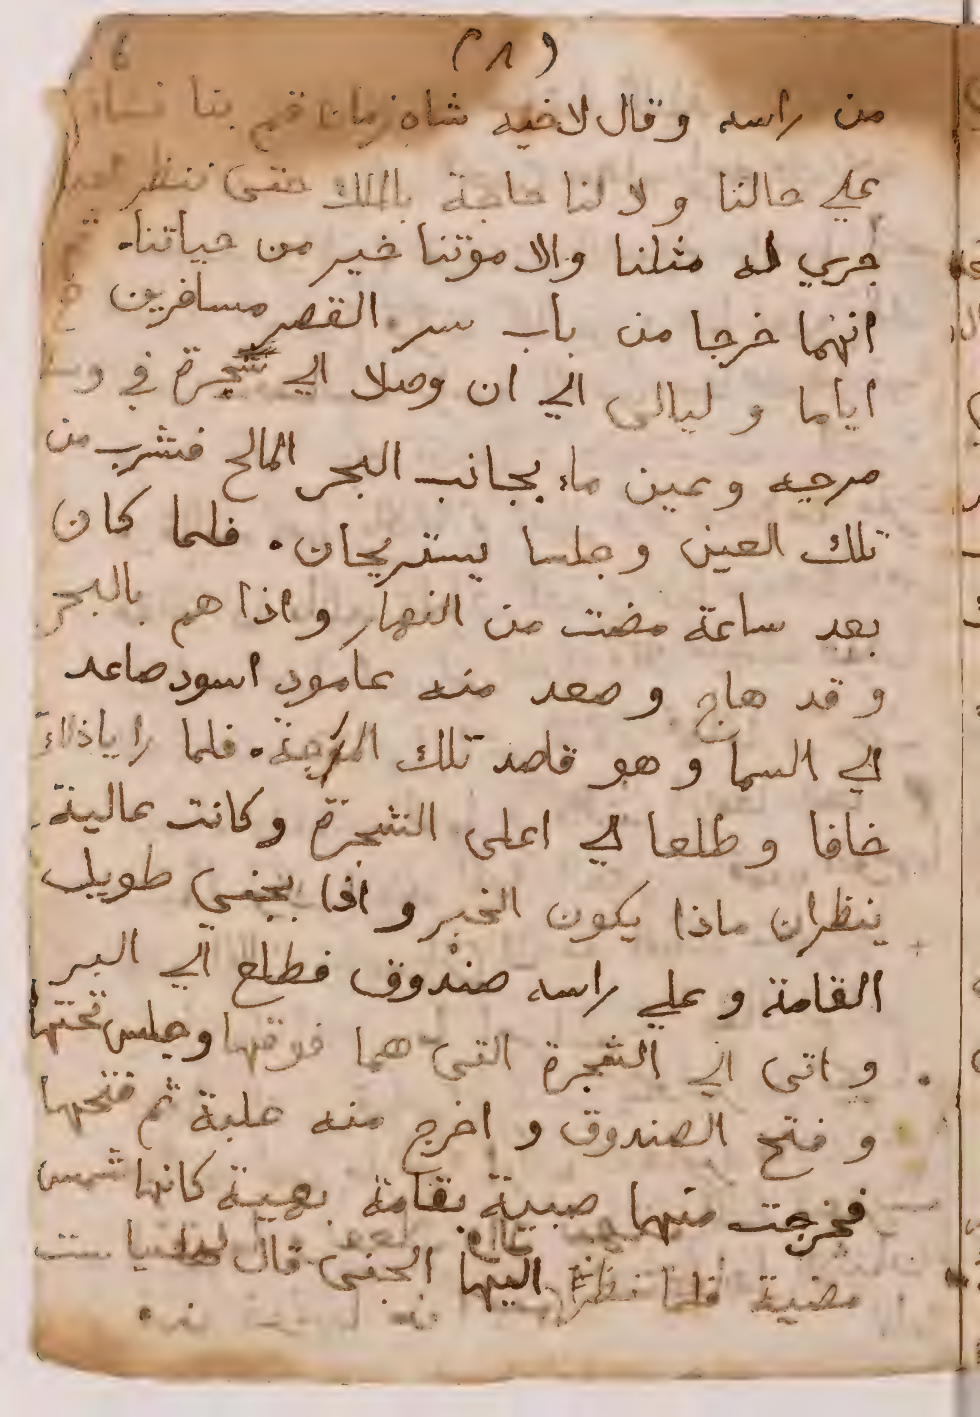 (٨)
من راسه وقال لاخيه شاه زمان قم بنا نسافر
علي حالنا و لا لنا حاجة بالملك حتى ننظر
جري له مثلنا والا موتنا خير من حياتنا. ثم
انهما خرجا من باب سر القصر مسافرين
اياما و ليالى الي ان وصلا الي شجرة في وسط
مرجه وعين ماء بجانب البحر المالح فشرب من
تلك العين وجلسا يستريحان. فلما كان
بعد ساعة مضت من النهار واذا هم بالبحر
وقد هاج وصعد منه عامود اسود صاعد
الي السما وهو قاصد تلك المرجة. فلما رايا ذلك
خافا وطلعا الي اعلى الشجرة وكانت عالية
ينظران ماذا يكون الخبر و اذا بجني طويل
القامة وعلي راسه صندوق فطلع الي البر
و اتى الي الشجرة التي هما فوقها وجلس تحتها
و فتح الصندوق و اخرج منه علبة ثم فتحها
فخرجت منها صبية بقامة بهية كانها شمس
مضية فلما نظر اليها الجني قال يا ست